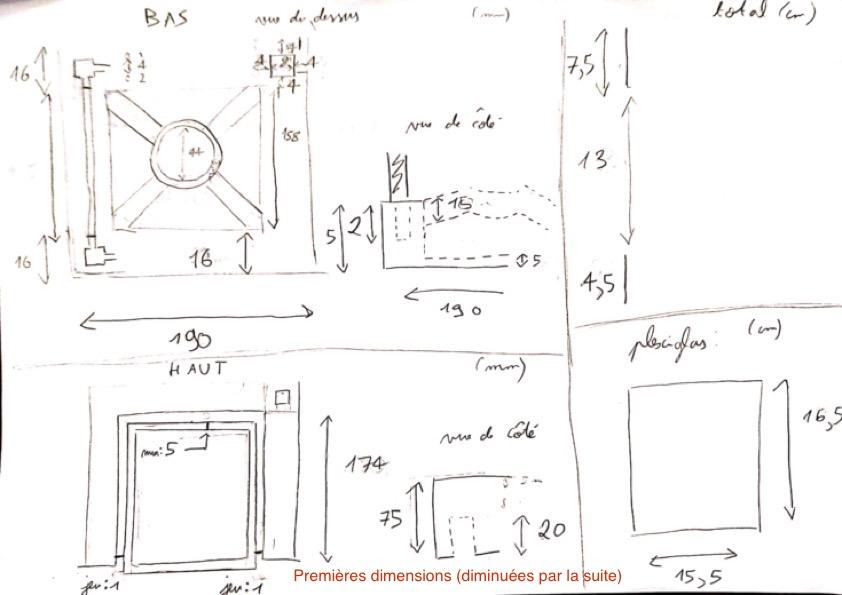 BAS
vue de dessus
(mm)
total (cm)
16
4
4
4
158
44
16
16
190
vue de côté
5
2
15
5
190
7,5
13
4,5
HAUT
(mm)
min: 5
174
jeu: 1
jeu: 1
vue de côté
75
20
plexiglas:
(cm)
16,5
15,5
Premières dimensions (diminuées par la suite)